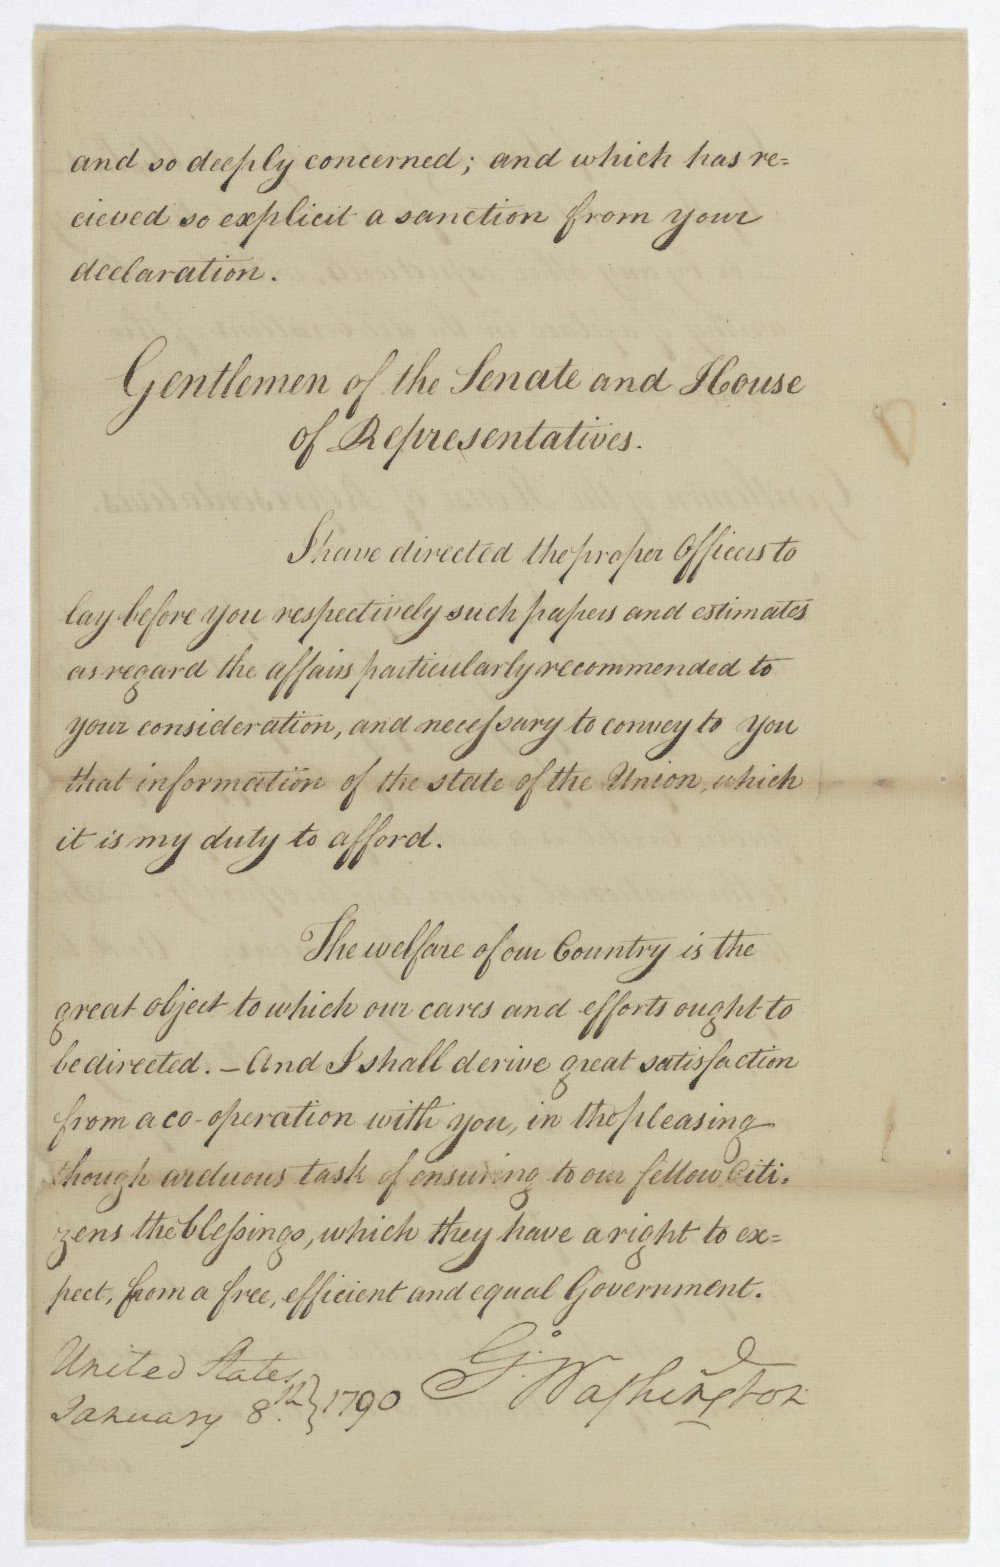 and so deeply concerned; and which has re=
cieved so explicit a sanction from your
declaration.
Gentlemen of the Senate and House
of Representatives.
I have directed the proper Officers to
lay before you respectively such papers and estimates
as regard the affairs particularly recommended to
your consideration, and necessary to convey to you
that information of the state of the Union, which
it is my duty to afford.
The welfare of our Country is the
great object to which our cares and efforts ought to
be directed. — And I shall derive great satisfaction
from a co-operation with you, in the pleasing
though arduous task of ensuring to our fellow Citi-
zens the blessings, which they have a right to ex=
pect, from a free, efficient and equal Government.
United States
January 8th. } 1790
G. Washington